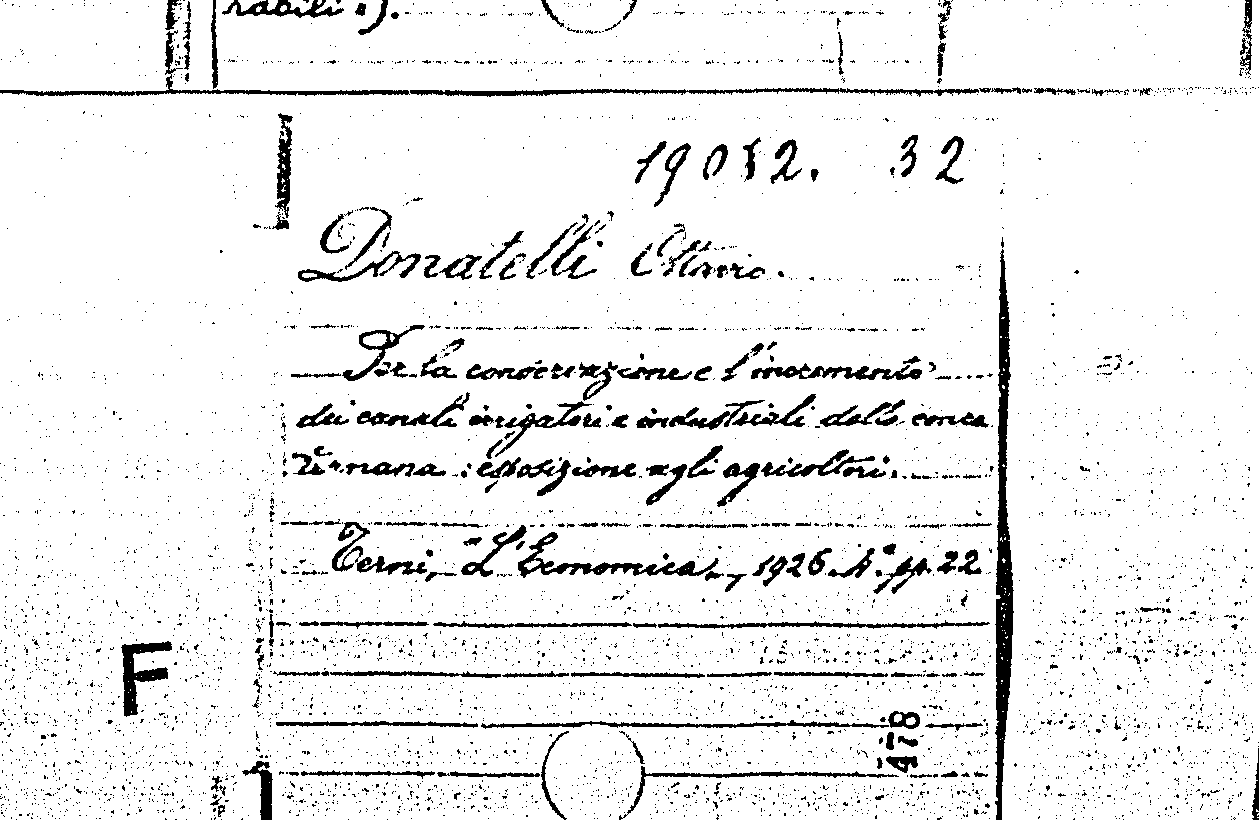 rabili »).
19052. 32
Donatelli Ottavio.
Per la conservazione e l'incremento
dei canali irrigatori e industriali della conca
ternana : esposizione agli agricoltori.
Terni, "L'Economica„, 1926. 4.° pp. 22
F
478